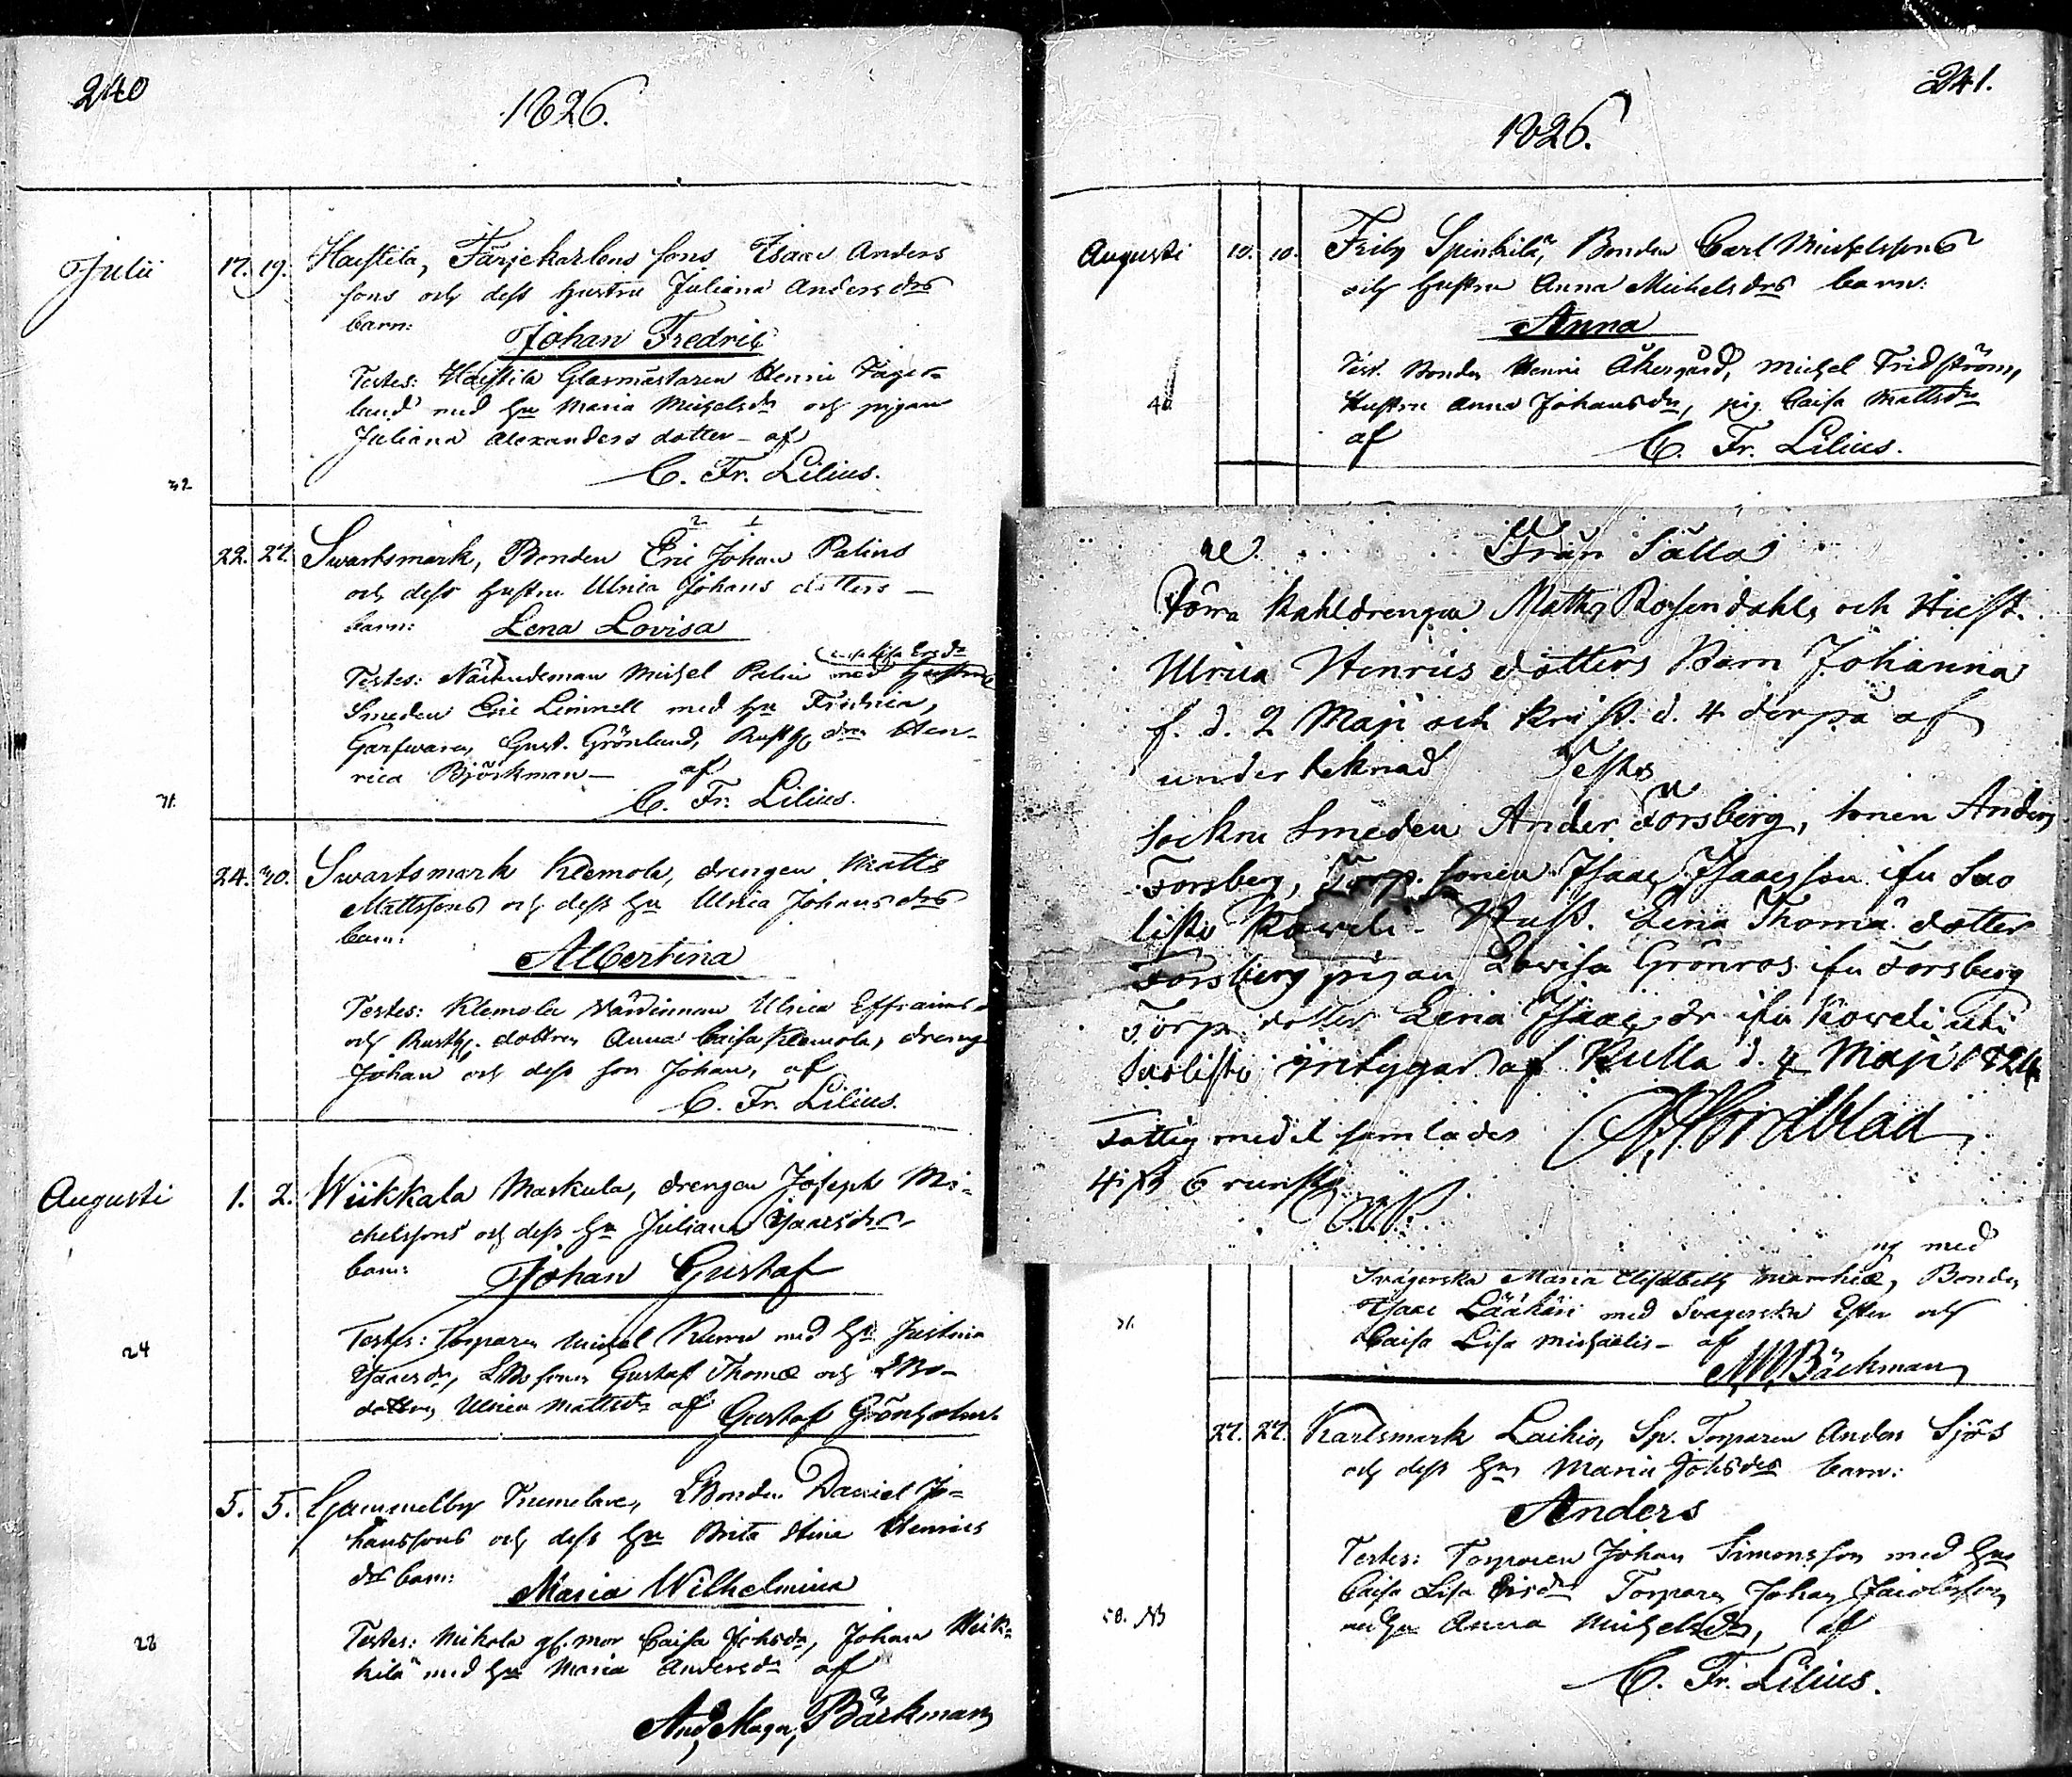 240
1826.
Julii
17. 19. Haistila, Färjekarlens sons Isaac Anders
sons och dess hustru Juliana Andersdrs
barn:
Johan Fredric
Testes: Haistila Glasmästaren Henric Fager-
lund med hu Maria Michelsdr och pigan
Juliana Alexanders dotter - af
C. Fr. Lilius.
32
2 1
22. 27. Swartsmark, Bonden Eric Johan Palins
och dess hustru Ulrica Johans dotters -
barn: Lena Lovisa
Testes: Nämndeman Michel Palin med hustru
Smeden Eric Linnell med hu Fredrica,
Garfwaren Gust. Grönlund, Rusth. dn Hen-
rica Björkman - af
C. Fr. Lilius.
31.
24. 30. Swartsmark Klemola, drengen Matts
Mattssons och dess hu Ulrica Johans drs
barn:
Albertina
Testes: Klemola Värdinnan Ulrica Effraims
och Rusth. dottren Anna Caisa Klemola, dreng
Johan och dess son Johan, af
C. Fr. Lilius.
Augusti
1. 2. Wiikkala Markula, drengen Joseph Mi-
chelssons och dess hu Juliana Isaacsdrs
barn: Johan Gustaf
Testes: Torparen Michel med hu Justina
Isaacsdr, sonen Gustaf Thomæ och
dottren Ulrica Mattsdr af Gustaf Grönholm.
24
5. 5. Gammelby Bonden Daniel Jo-
hanssons och dess hu Brita Stina Henrics
drs barn:
Maria Wilhelmina
Testes: Mickola gl. mor Caisa Johsdr, Johan Heik-
kilä med hu Maria Andersdr af
And. Magn. Bäckman
28
241.
1826.
Augusti
10. 10. Friby Speinkilä, Bonden Carl Michelssons
och hustru Anna Michelsdrs barn:
Anna
Test. Bonden Henric Åkergård, Michel Fridström,
Hustru Anna Johansdr, pig. Caisa Mattsdr
af C. Fr. Lilius.
40
Från Sälla
Förra Kahldrengen Matths Rosendahls och Hust.
Ulrica Henrics dotters Barn Johanna
f. d. 2 Maji och Krist. d. 4 derpå af
under teknad Testes
Sockne Smeden Ander Forsberg, sonen Anders
Forsberg, Torp. sonen Isaac Isaacsson ifn Suo
listo Kaweli - Hust. Lena Thomæ dotter
Forsberg pigan Lovisa Grönros ifn Forsberg
Torp. dotter Lena Isaacs dr ifn Koweli uti
Suolisto intygar af Kulla d. 4 Maji 1824
Nordblad
Fattig medel samlades
6 runst.
ng med
Svägerska Maria Elisabeth Bonden
Isaac Lääkäri med Svägerska Ester och
Caisa Lisa Michaelis - af
A. M. Bäckman
27. 27. Karlsmark Laihio, Sp. Torparen Anders Sjös
och dess hus Maria Johsdrs barn:
Anders
Testes: Torparen Johan Simonsson med hu
Caisa Lisa Ericsdr Torparen Johan Jacobsson
med hu Anna Michelsdr, af
C. Fr. Lilius.